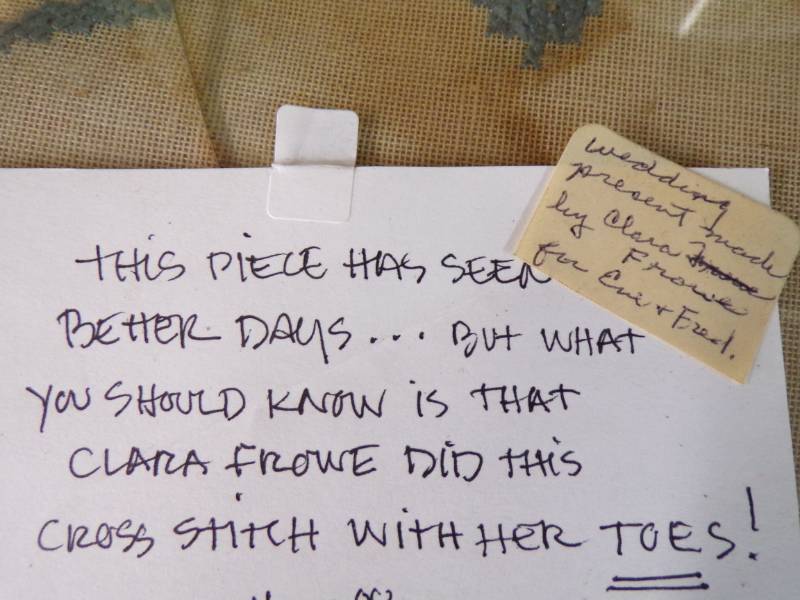 THIS PIECE HAS SEEN
BETTER DAYS... BUT WHAT
YOU SHOULD KNOW IS THAT
CLARA FROWE DID THIS
CROSS STITCH WITH HER TOES!
wedding
present made
by Clara
Frowe
for Evie + Fred.